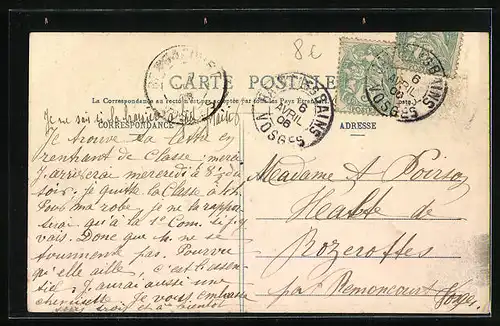 8€
CARTE POSTALE
La Correspondance au recto n'est pas acceptée par tous les Pays Étrangers
CORRESPONDANCE
ADRESSE
LES BAINS
6
AVRIL
06
VOSGES
LES BAINS
6
AVRIL
06
VOSGES
Je trouve ta lettre en
rentrant de Classe, merci
J'arriverai mercredi à 8h du
soir. Je quitte la Classe à 4h
Pour ma robe, je ne la
qu'à la 1e Com. si j'y
vais. Donc que tu ne se
tourmente pas. Pourvu
qu'elle aille, c'est l'essen-
tiel. J'aurai aussi une
chemisette. Je vous embrasse
bientôt
Madame A. Poirson
Halte de
Rozerottes
par Remoncourt
Vosges